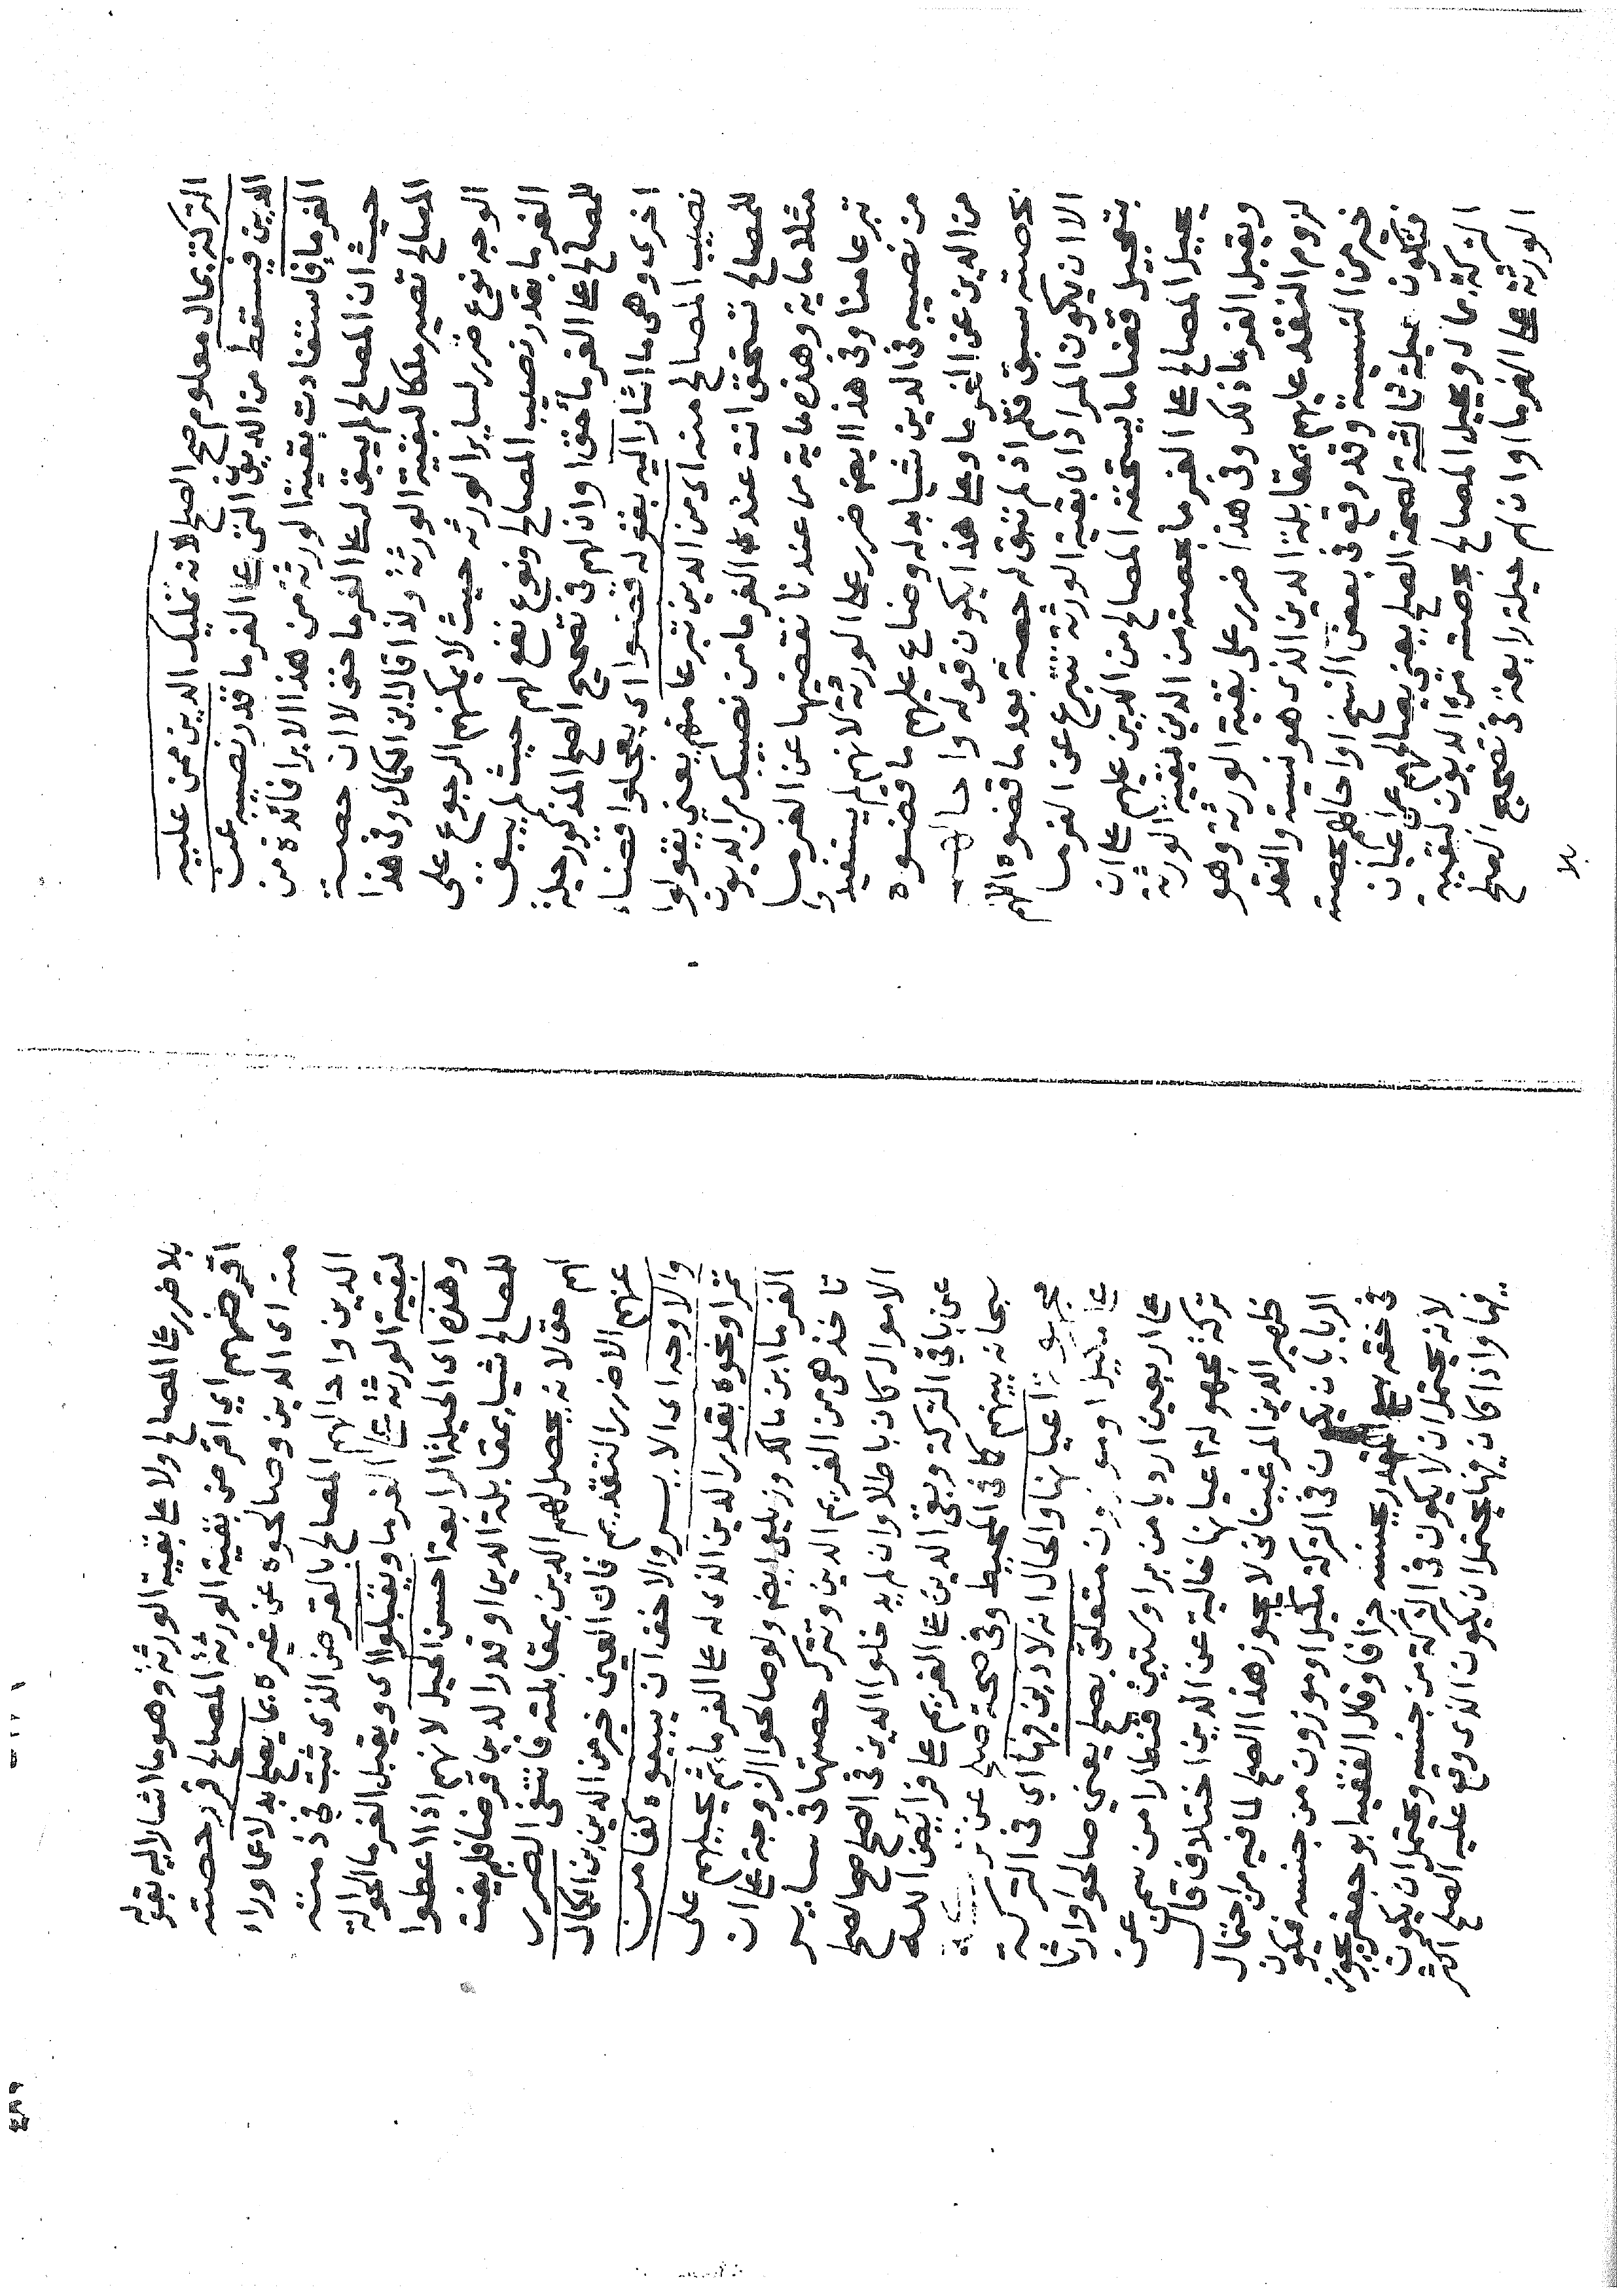 التركة بمال معلوم صح الصلح لانه تمليك الدين ممن عليه
الدين فيسقط من الدين الذي على الغرما قدر نصيبه عن
الغرما فاستفادت بقية الورثة من هذا الابرا فائدة من
حيث ان المصالح لم يبق له على الغرما حق لا ان حصة
المصالح تصير ملكا لبقية الورثة ولذا قال ابن الكمال وفى هذا
الوجه نوع ضرر لساير الورثه حيث لا يمكنهم الرجوع على
الغرما بقدر نصيب المصالح ونوع نفع لهم حيث لم يبق
للمصالح على الغرما حق وان لهم فى تصحيح الصلح المذكور حيلة
اخرى وهى ما اشار اليه بقوله قضوا اى يعجلوا قضاء
نصيب المصالح منه اى من الدين تبرعا منهم يعني يقولوا
للمصالح تستحق انت عند الغرما من نصيبك من الديون
مثلا ماية وهذه ماية من عندنا نقضيها عن الغرما
تبرعا منا وفى هذا ايضا ضرر على الورثة لانهم لم يستفيدوا
من نصيبه فى الدين شيا بدله وضاع عليهم ما قضوه
من الدين عن الغرما وعلى هذا يكون قوله واحالهم
بحصته سبق قلم اذ لم تبق له حصة بعد ما قضوه اللهم
الا ان يكون المراد ان بقية الورثة تتبرع عن الغرما
بتعجيل قضا ما يستحقه المصالح من الدين عليهم على ان
يحيل المصالح على الغرما بحصته من الدين لبقية الورثة
ويقبل الغرما ذلك وفى هذا ضرر على بقية الورثة وهو
لزوم النقد عليهم بمقابلة الدين الذى هو نسية والنقد
خير من النسية وقد وقع فى بعض النسخ او احالهم بحصته
فتكون حيلة ثالثة لصحة الصلح يعني يصالحهم عن اعيان
التركة بمال ويحيل المصالح بحصته من الديون لبقية
الورثة على الغرما وان لهم حيلة رابعة فى تصحيح الصلح
بلا
بلا ضرر على المصالح ولا على بقية الورثة وهو ما اشار اليه بقوله
اقرضهم اي اقرض بقية الورثة المصالح قدر حصته
منه اى الدين وصالحوه عن غيره بما يصلح بدلا عما وراء
الدين واحالهم المصالح بالقرض الذى ثبت فى ذمته
لبقية الورثة على الغرما ويقبلوا اى ويقبل الغرما الحوالة
وهذه اى الحيلة الرابعة احسن الحيل لانهم اذا اعطوا
للمصالح شيا بمقابلة الدين او قدر الدين قرضا فلم يفت
لهم حق لانه يحصل لهم الدين بمقابلته فانتفى الضرر
عنهم الا ضرر التقديم فان العين خير من الدين ابن الكمال
والاوجه اى الايسر والاخف ان يبيعوه كفا من
تمر او نحوه بقدر الدين الذى له على الغرماء ثم يحيلهم على
الغرما ابن مالك وزيلعي ايضا ولو صالحوا الزوجة على ان
تاخذ هى من الغريم الدين وتترك حصتها فى ساير
الاموال كان باطلا وان لم يدخلوا الدين فى الصلح صح الصلح
عن باقى التركة وبقى الدين على الغريم على فرائض الله
سبحانه بينهم كما فى المحيط وفى صحة صلح عن تركة
مجهولة اعيانها والحال انه لا دين فيها اي فى التركة
على مكيل او موزون متعلق بصلح يعني صالحوا وارثا
على اربعين اردبا من بر او ستين قنطارا من سمن عن
تركة مجهولة اعيانها خالية عن الدين اختلاف قال
ظهير الدين المرغينانى لا يجوز هذا الصلح لما فيه من احتمال
الربا بان يكون فى التركة مكيل او موزون من جنسه فيكون
فى حقه بيع المقدر بجنسه جزافا وقال الفقيه ابو جعفر يجوز
لانه يحتمل ان لا يكون فى التركة من جنسه ويحتمل ان يكون
فيها واذا كان فيها يحتمل ان يكون الذى وقع عليه الصلح اكثر